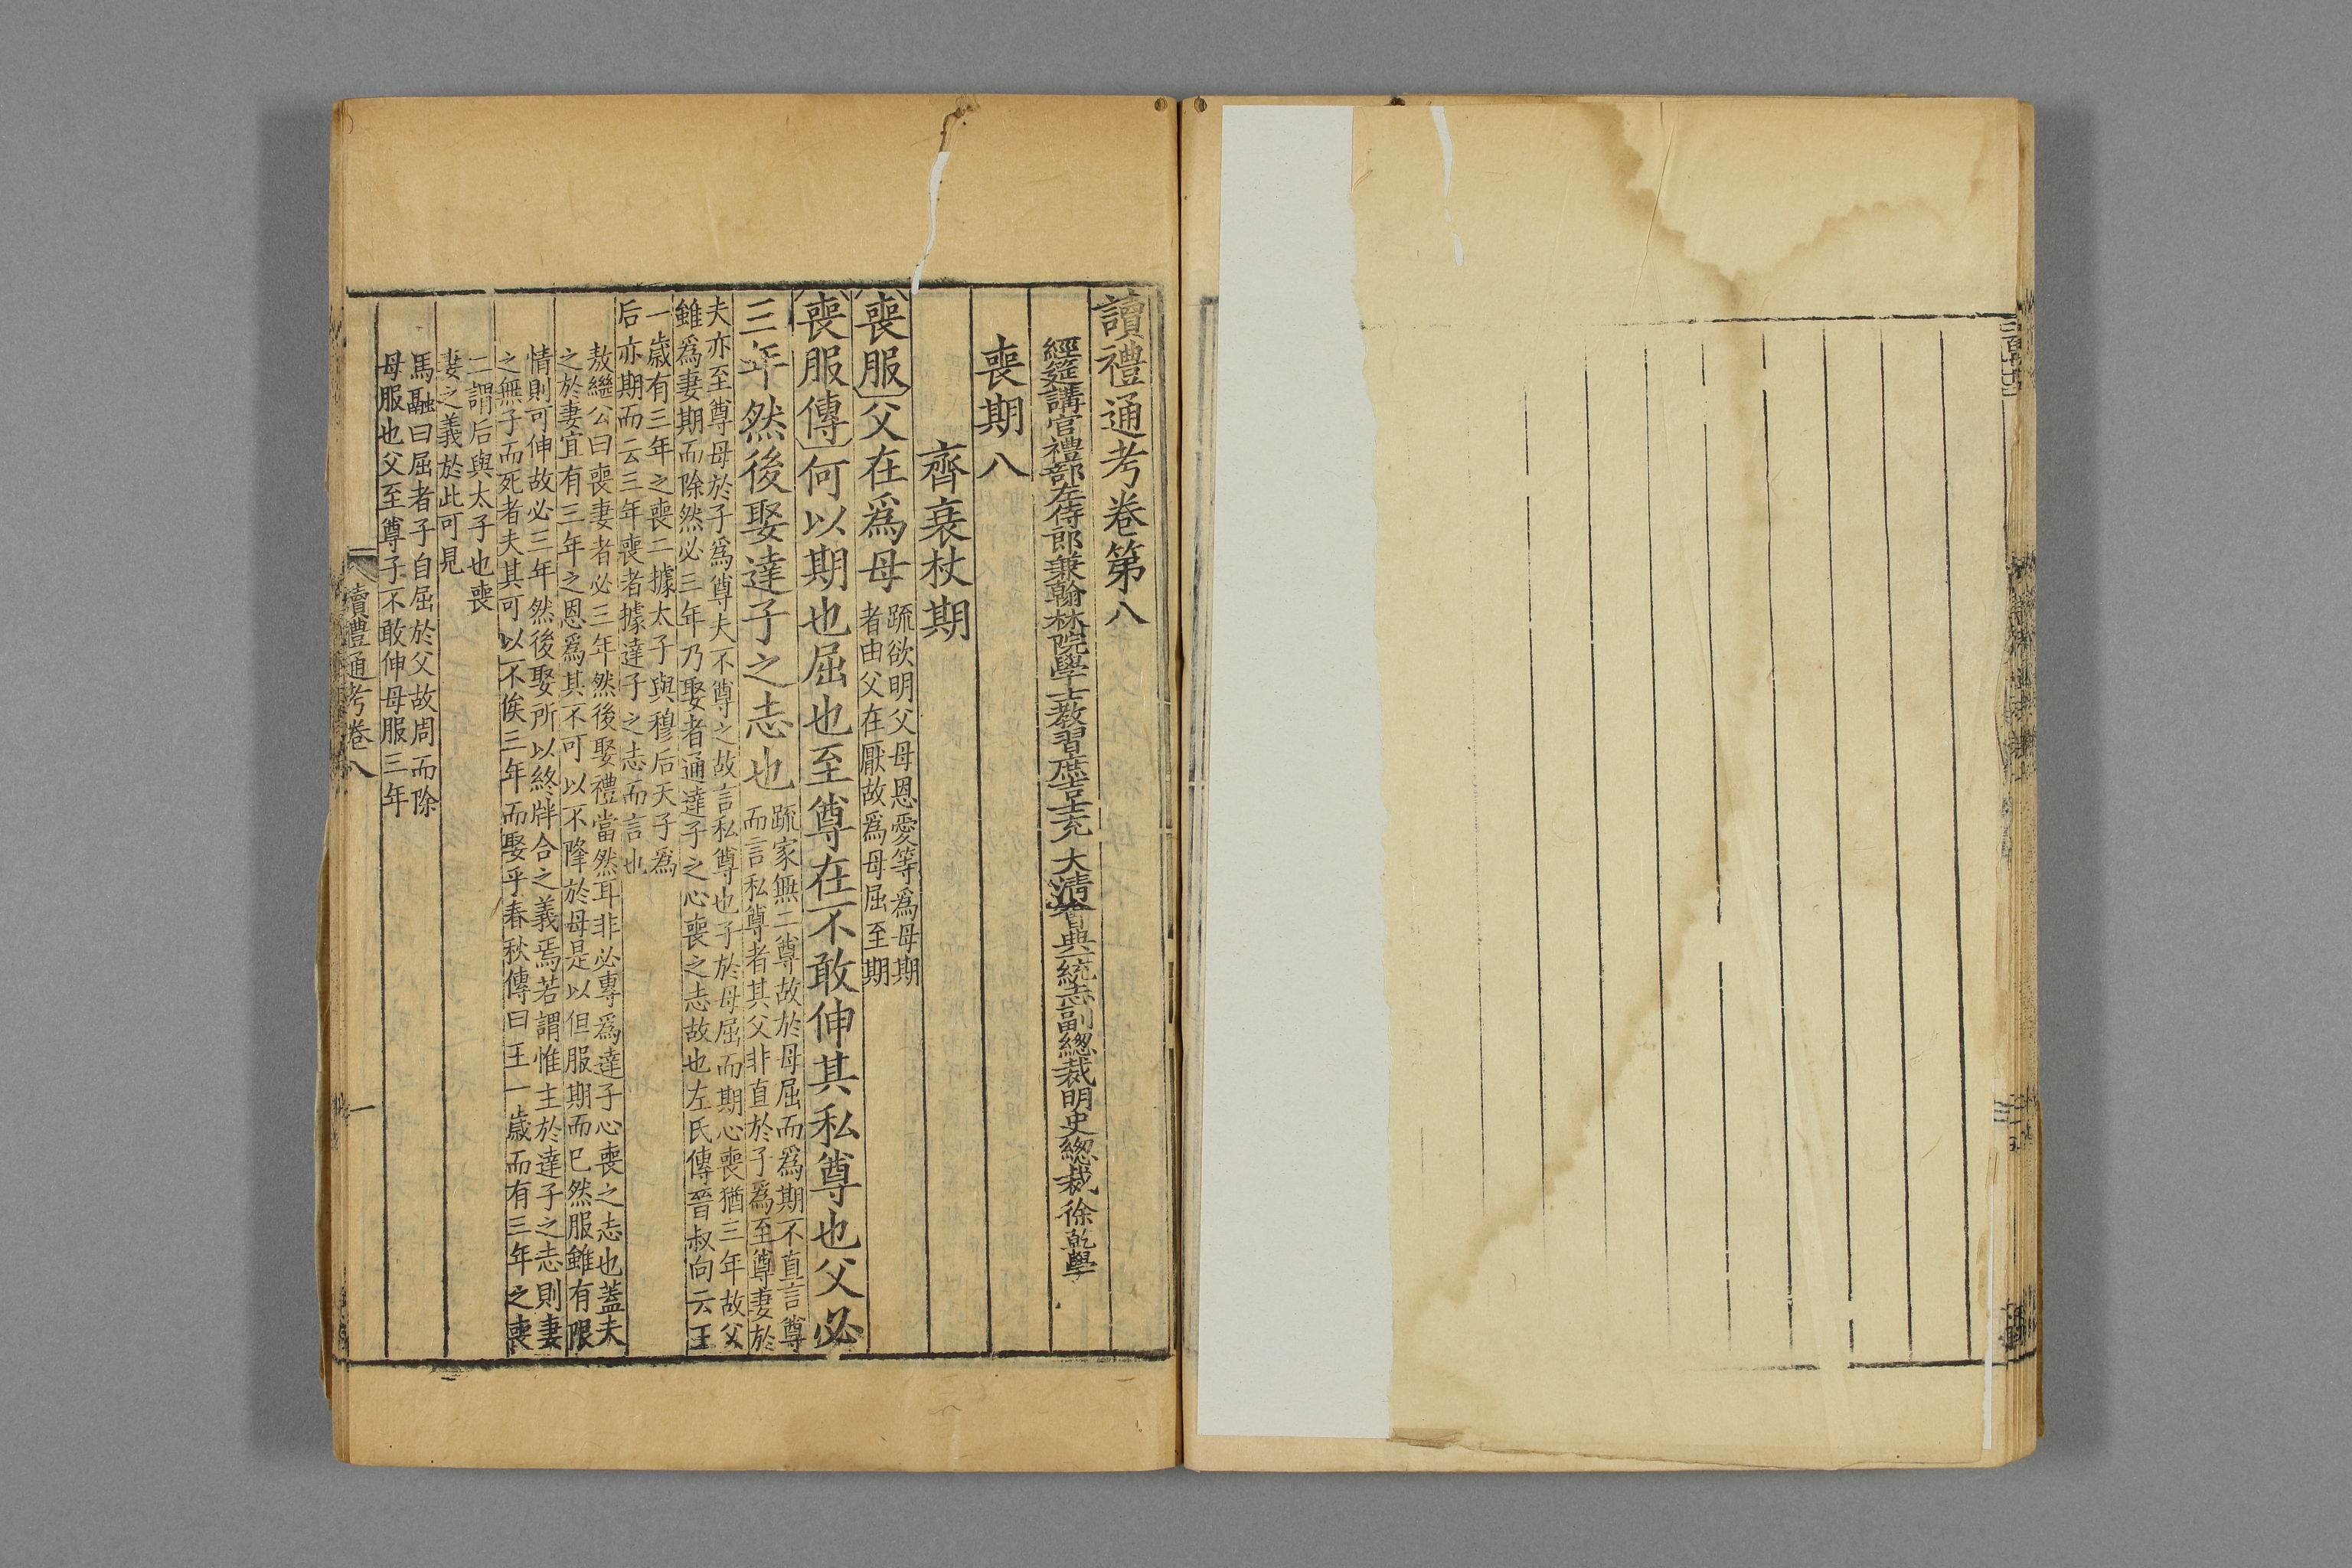 讀禮通考卷第八
經筵講官禮部左侍郎兼翰林院學士教習庶吉士充 大清會典一統志副總裁明史總裁徐乾學
喪期八
齊衰杖期
喪服父在爲母
疏欲明父母恩愛等爲母期
者由父在厭故爲母屈至期
喪服傳何以期也屈也至尊在不敢伸其私尊也父必
三年然後娶達子之志也
疏家無二尊故於母屈而爲期不直言尊
而言私尊者其父非直於子爲至尊妻於
夫亦至尊母於子爲尊夫不尊之故言私尊也子於母屈而期心喪猶三年故父
雖爲妻期而除然必三年乃娶者通達子之心喪之志故也左氏傳晉叔向云王
一歲有三年之喪二據太子與穆后天子爲
后亦期而云三年喪者據達子之志而言也
敖繼公曰喪妻者必三年然後娶禮當然耳非必專爲達子心喪之志也蓋夫
之於妻宜有三年之恩爲其不可以不降於母是以但服期而已然服雖有限
情則可伸故必三年然後娶所以終牉合之義焉若謂惟主於達子之志則妻
之無子而死者夫其可以不俟三年而娶乎春秋傳曰王一歲而有三年之喪
二謂后與太子也喪
妻之義於此可見
馬融曰屈者子自屈於父故周而除
母服也父至尊子不敢伸母服三年
讀禮通考卷八
一